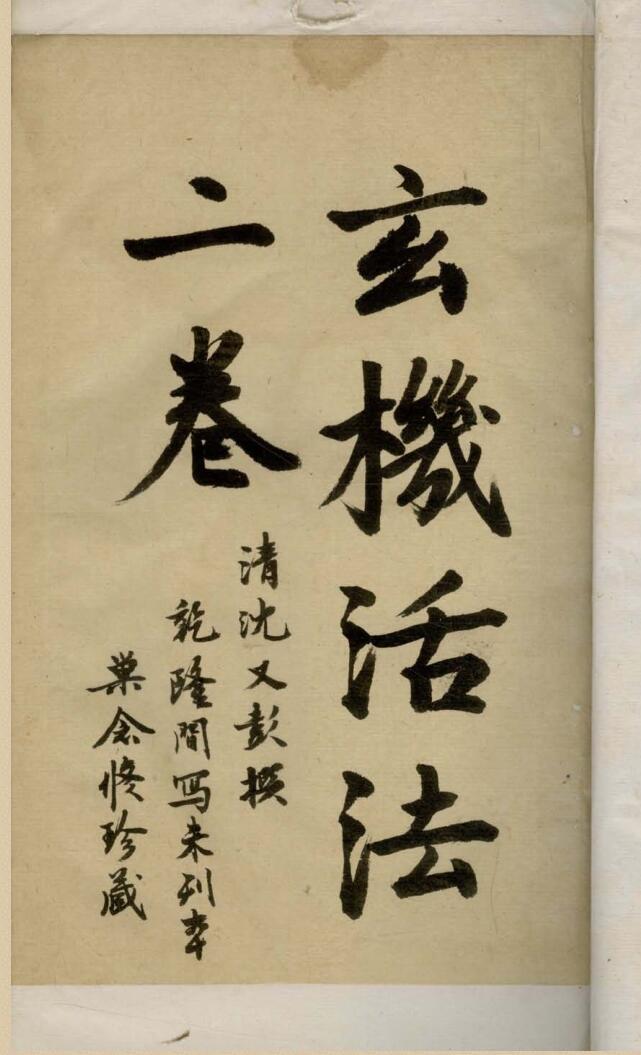 玄機活法
二卷
清沈又彭撰
乾隆間写未刊本
巢念修珍藏